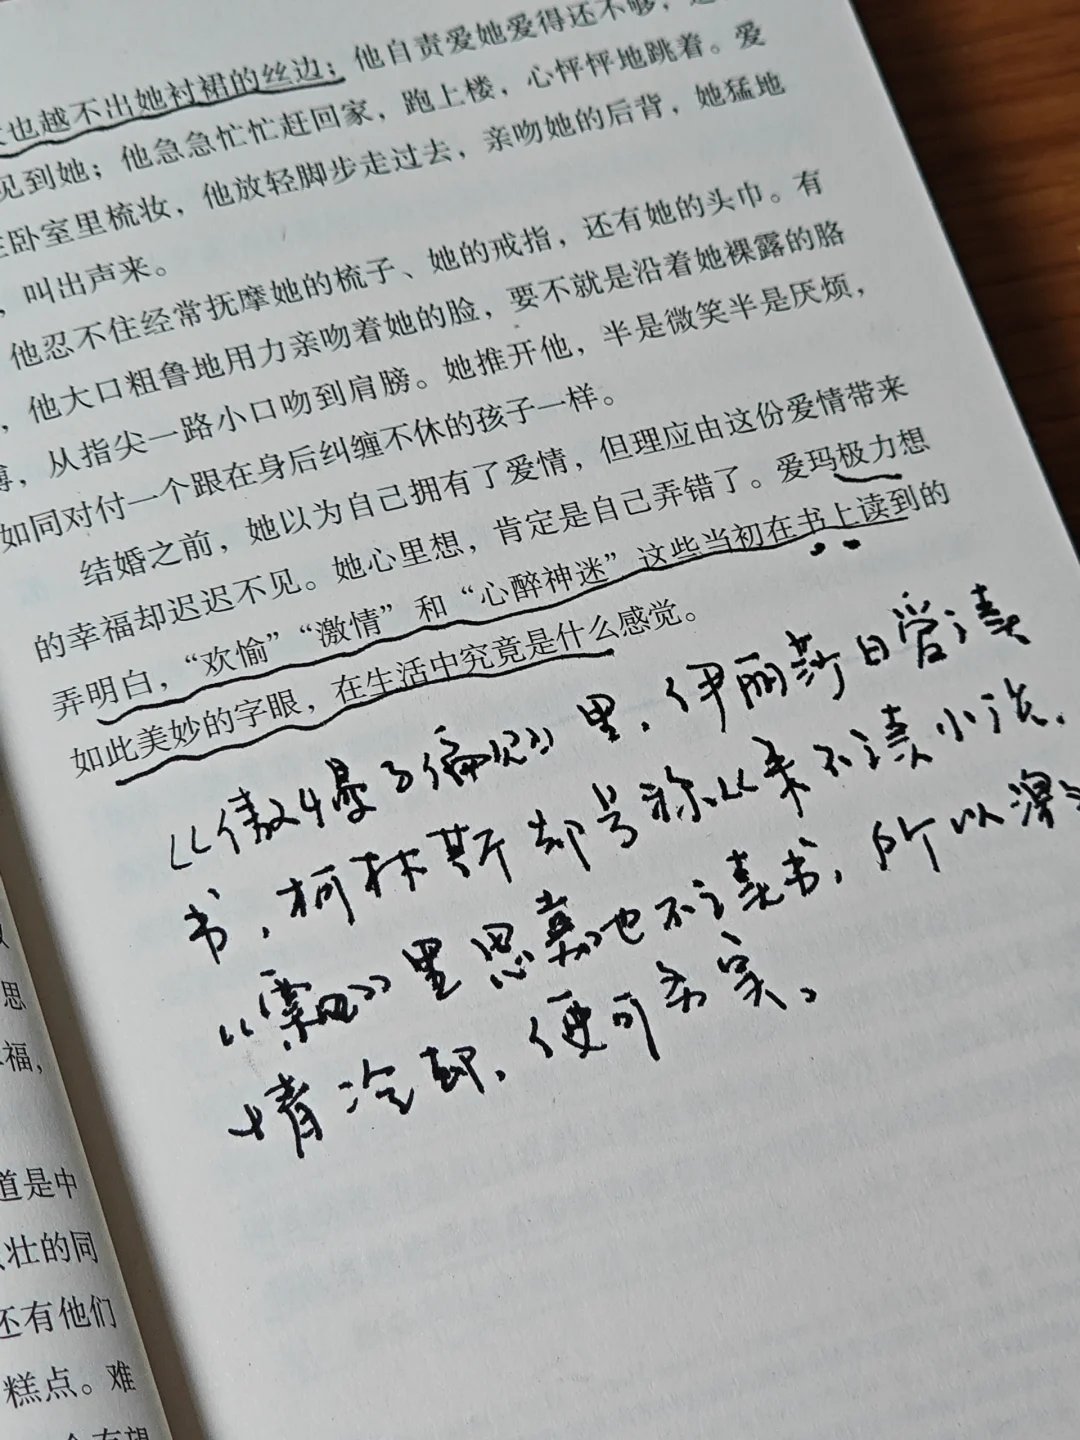 也越不出她衬裙的丝边；他自责爱她爱得还不够，
见到她；他急急忙忙赶回家，跑上楼，心怦怦地跳着。爱
卧室里梳妆，他放轻脚步走过去，亲吻她的后背，她猛地
，叫出声来。
他忍不住经常抚摩她的梳子、她的戒指，还有她的头巾。有
，他大口粗鲁地用力亲吻着她的脸，要不就是沿着她裸露的胳
，从指尖一路小口吻到肩膀。她推开他，半是微笑半是厌烦，
如同对付一个跟在身后纠缠不休的孩子一样。
结婚之前，她以为自己拥有了爱情，但理应由这份爱情带来
的幸福却迟迟不见。她心里想，肯定是自己弄错了。爱玛极力想
弄明白，“欢愉”“激情”和“心醉神迷”这些当初在书上读到的
如此美妙的字眼，在生活中究竟是什么感觉。
《傲慢与偏见》里，伊丽莎白爱读
书，柯林斯却号称从来不读小说，
《飘》里思嘉也不读书，所以
情冷却，便可务实。
思
福，
道是中
壮的同
还有他们
糕点。难